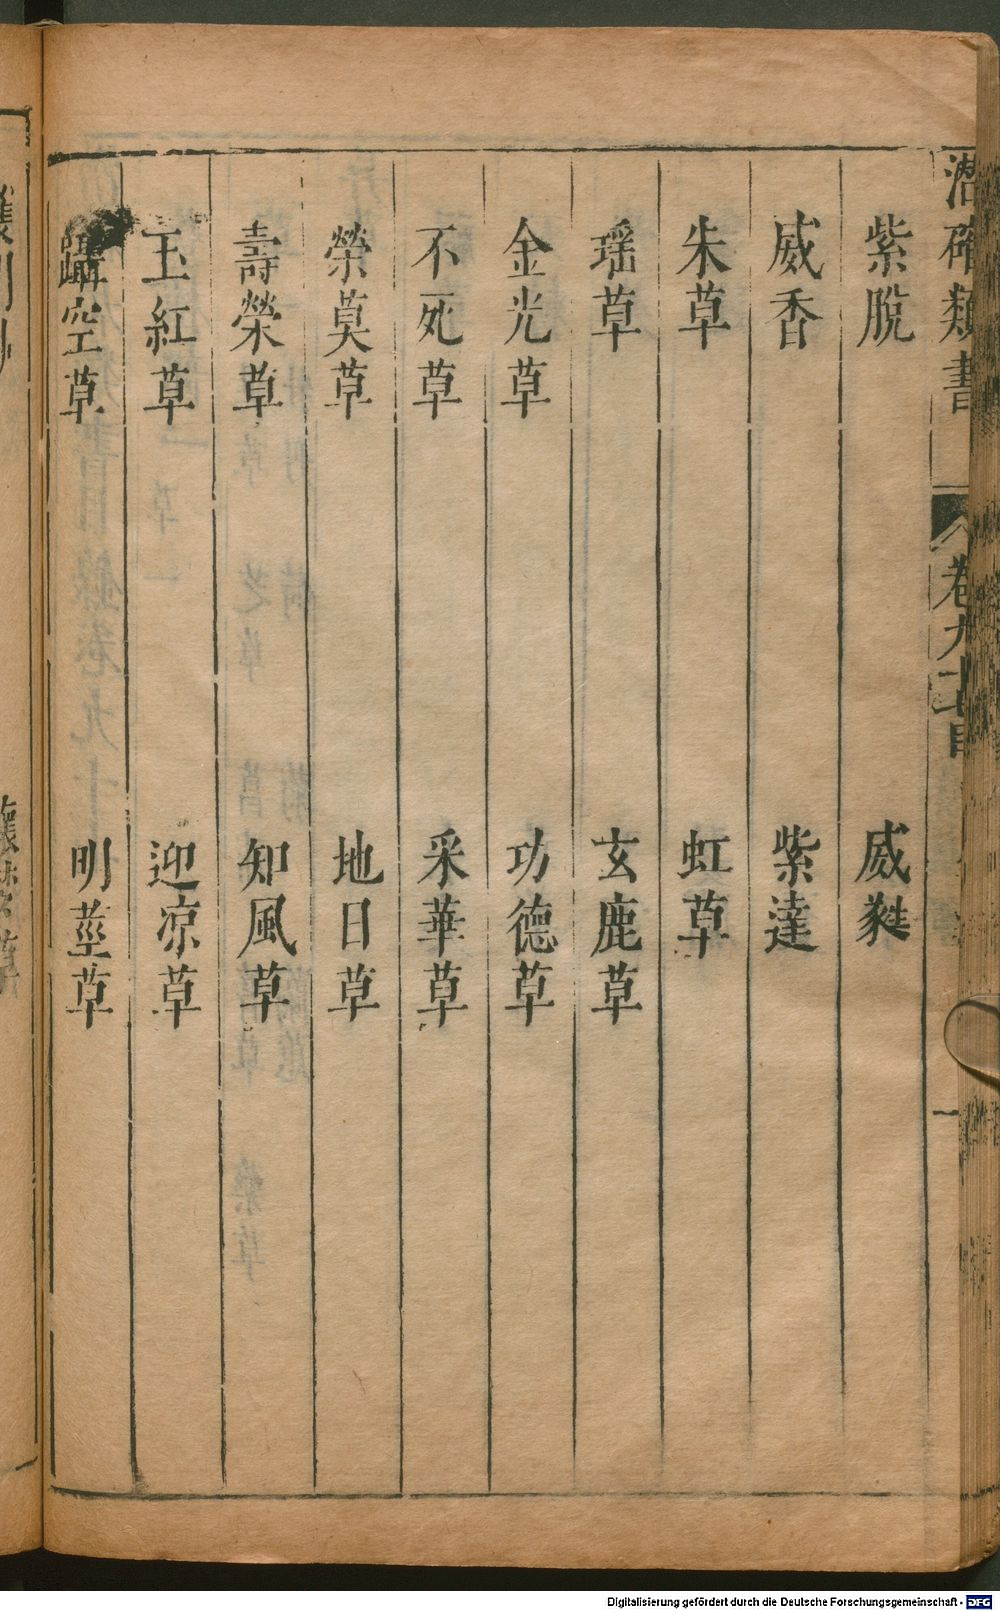 潛確類書 卷九十 目 一
紫脫 威蕤
威香 紫達
朱草 虹草
瑶草 玄鹿草
金光草 功德草
不死草 采華草
榮莫草 地日草
壽榮草 知風草
玉紅草 迎凉草
躡空草 明莖草
Digitalisierung gefördert durch die Deutsche Forschungsgemeinschaft - DFG